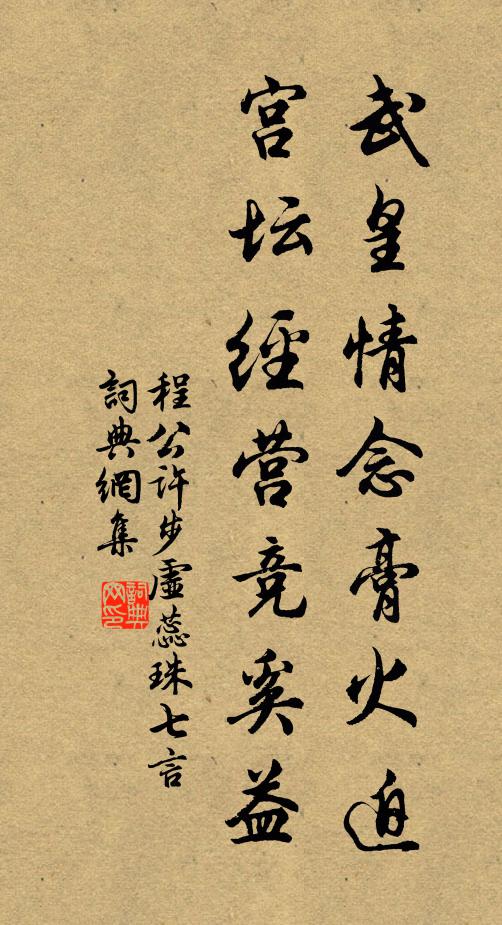 武皇情念膏火迫
宫坛经营竞奚益
程公许步虚蕊珠七言
詞典網集
詞典网印